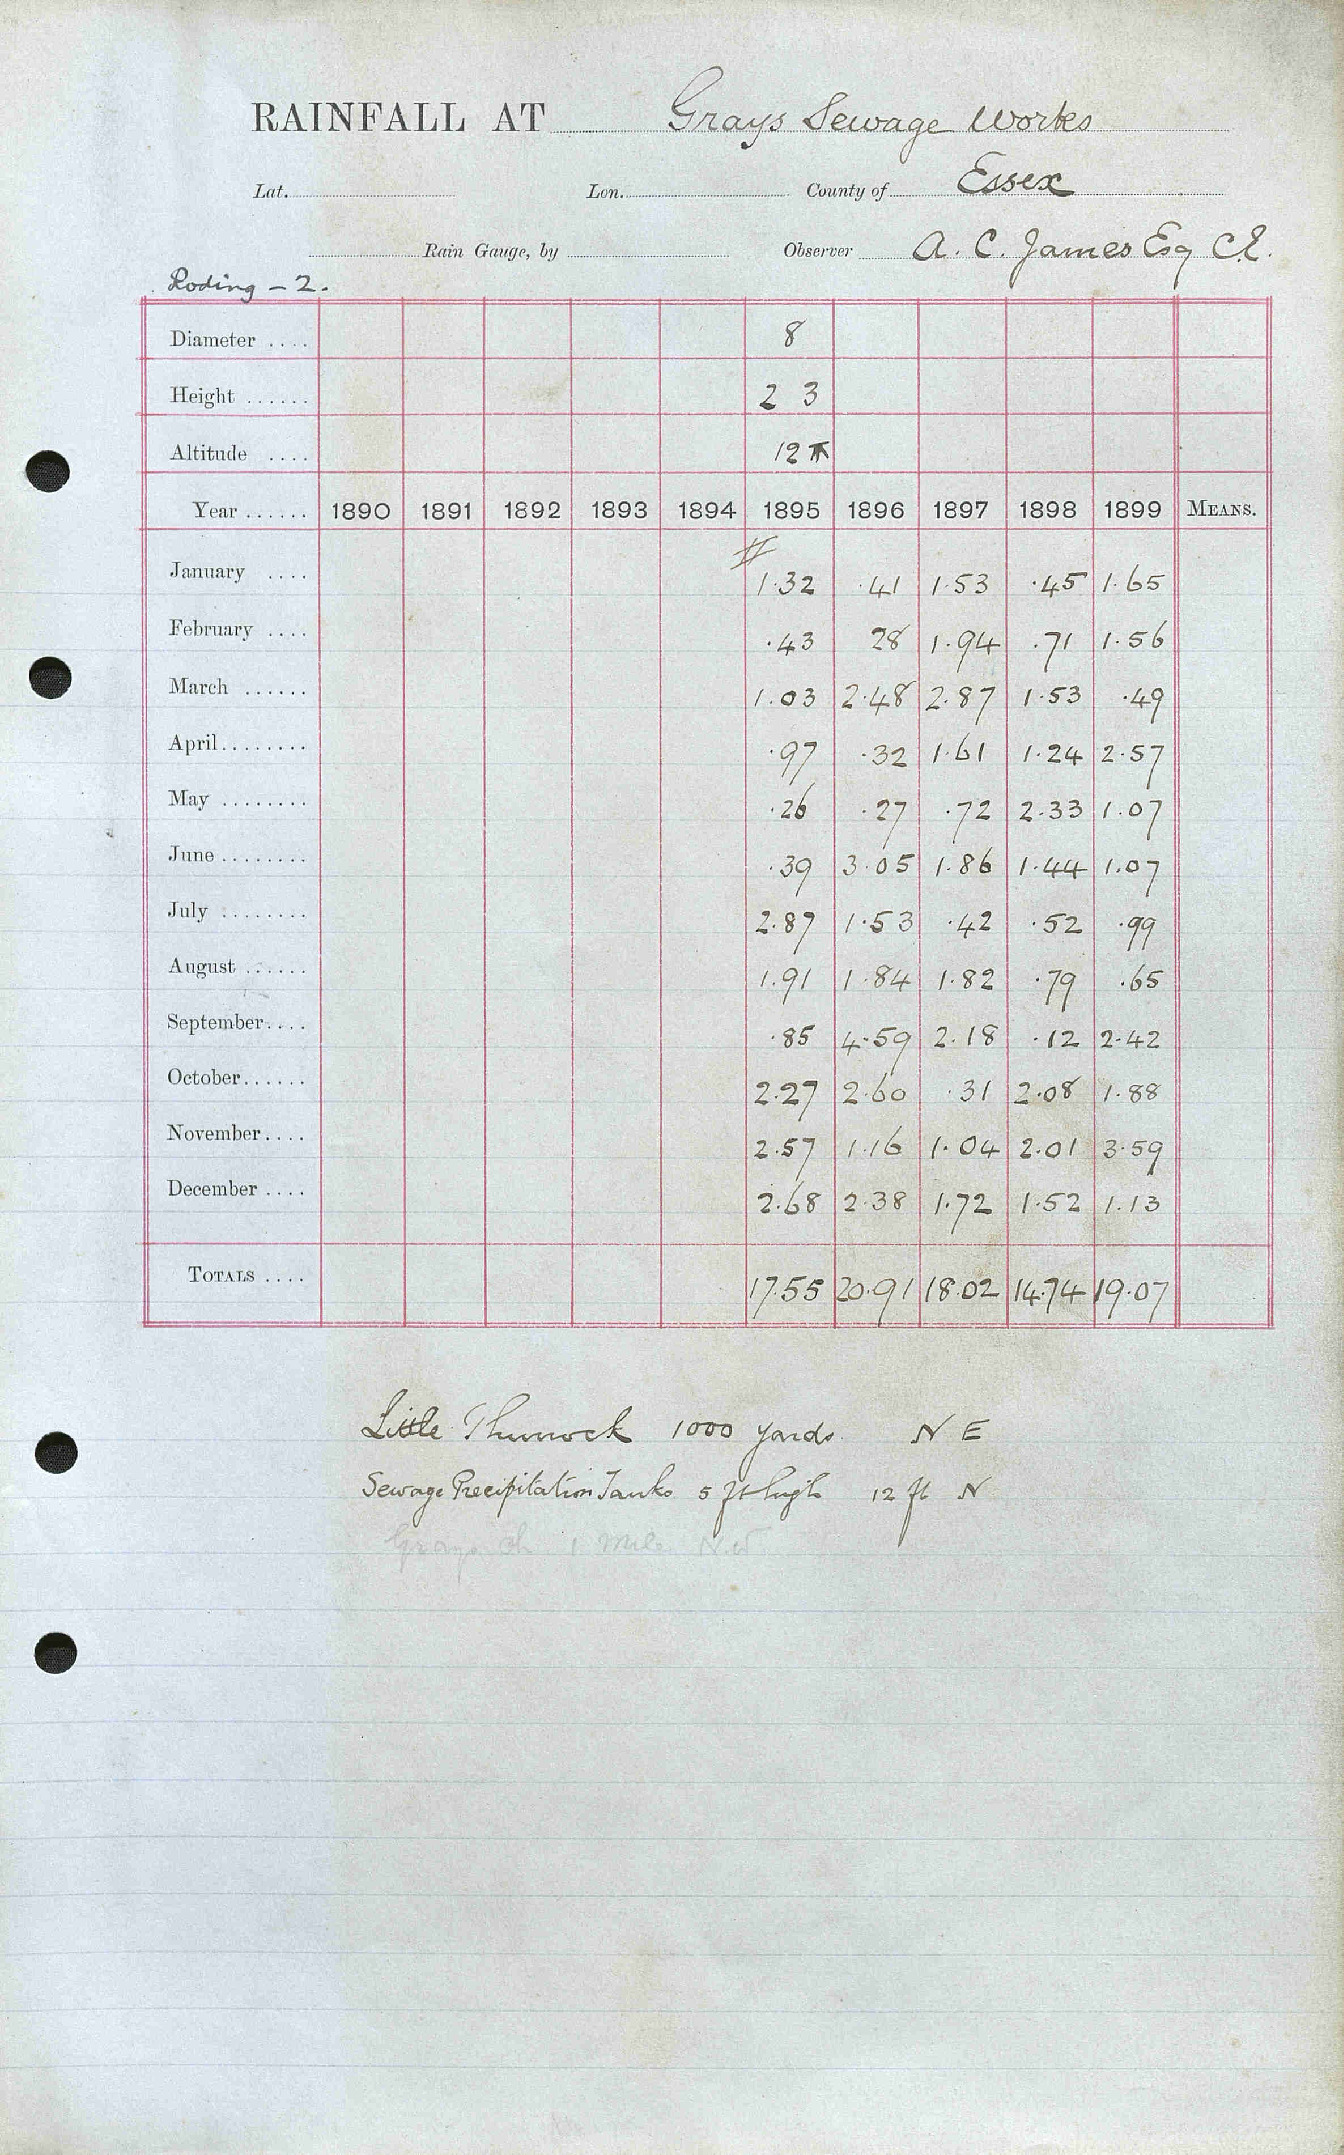 RAINFALL AT Grays Sewage Works
Lat. Lon. County of Essex
Rain Gauge, by Observer A. C. James Esq C.E.
Roding - 2.
Diameter .... 8
Height ...... 2 3
Altitude .... 12
Year ...... 1890 1891 1892 1893 1894 1895 1896 1897 1898 1899 MEANS.
January .... 1.32 .41 1.53 .45 1.65
February .... .43 28 1.94 .71 1.56
March ...... 1.03 2.48 2.87 1.53 .49
April........ .97 .32 1.61 1.24 2.57
May ........ .26 .27 .72 2.33 1.07
June ........ .39 3.05 1.86 1.44 1.07
July ........ 2.87 1.53 .42 .52 .99
August ...... 1.91 1.84 1.82 .79 .65
September.... .85 4.59 2.18 .12 2.42
October...... 2.27 2.60 .31 2.08 1.88
November.... 2.57 1.16 1.04 2.01 3.59
December .... 2.68 2.38 1.72 1.52 1.13
TOTALS .... 17.55 20.91 18.02 14.74 19.07
Little Thurrock 1000 yards. N E
Sewage Precipitation Tanks 5 ft high 12 ft N
Grays Ch. 1 Mile N.W